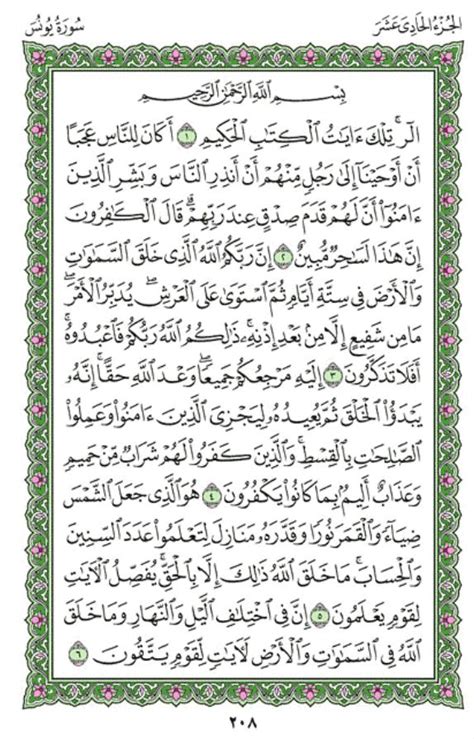 الجزء الحادى عشر
سورة يونس
بِسْمِ ٱللَّهِ ٱلرَّحْمَٰنِ ٱلرَّحِيمِ
الٓر ۚ تِلْكَ ءَايَٰتُ ٱلْكِتَٰبِ ٱلْحَكِيمِ ١ أَكَانَ لِلنَّاسِ عَجَبًا
أَنْ أَوْحَيْنَآ إِلَىٰ رَجُلٍ مِّنْهُمْ أَنْ أَنذِرِ ٱلنَّاسَ وَبَشِّرِ ٱلَّذِينَ
ءَامَنُوٓا۟ أَنَّ لَهُمْ قَدَمَ صِدْقٍ عِندَ رَبِّهِمْ ۗ قَالَ ٱلْكَٰفِرُونَ
إِنَّ هَٰذَا لَسَٰحِرٌ مُّبِينٌ ٢ إِنَّ رَبَّكُمُ ٱللَّهُ ٱلَّذِى خَلَقَ ٱلسَّمَٰوَٰتِ
وَٱلْأَرْضَ فِى سِتَّةِ أَيَّامٍ ثُمَّ ٱسْتَوَىٰ عَلَى ٱلْعَرْشِ ۖ يُدَبِّرُ ٱلْأَمْرَ ۖ
مَا مِن شَفِيعٍ إِلَّا مِنۢ بَعْدِ إِذْنِهِۦ ۚ ذَٰلِكُمُ ٱللَّهُ رَبُّكُمْ فَٱعْبُدُوهُ ۚ
أَفَلَا تَذَكَّرُونَ ٣ إِلَيْهِ مَرْجِعُكُمْ جَمِيعًا ۖ وَعْدَ ٱللَّهِ حَقًّا ۚ إِنَّهُۥ
يَبْدَؤُا۟ ٱلْخَلْقَ ثُمَّ يُعِيدُهُۥ لِيَجْزِىَ ٱلَّذِينَ ءَامَنُوا۟ وَعَمِلُوا۟
ٱلصَّٰلِحَٰتِ بِٱلْقِسْطِ ۚ وَٱلَّذِينَ كَفَرُوا۟ لَهُمْ شَرَابٌ مِّنْ حَمِيمٍ
وَعَذَابٌ أَلِيمٌۢ بِمَا كَانُوا۟ يَكْفُرُونَ ٤ هُوَ ٱلَّذِى جَعَلَ ٱلشَّمْسَ
ضِيَآءً وَٱلْقَمَرَ نُورًا وَقَدَّرَهُۥ مَنَازِلَ لِتَعْلَمُوا۟ عَدَدَ ٱلسِّنِينَ
وَٱلْحِسَابَ ۚ مَا خَلَقَ ٱللَّهُ ذَٰلِكَ إِلَّا بِٱلْحَقِّ ۚ يُفَصِّلُ ٱلْءَايَٰتِ
لِقَوْمٍ يَعْلَمُونَ ٥ إِنَّ فِى ٱخْتِلَٰفِ ٱلَّيْلِ وَٱلنَّهَارِ وَمَا خَلَقَ
ٱللَّهُ فِى ٱلسَّمَٰوَٰتِ وَٱلْأَرْضِ لَءَايَٰتٍ لِّقَوْمٍ يَتَّقُونَ ٦
٢٠٨